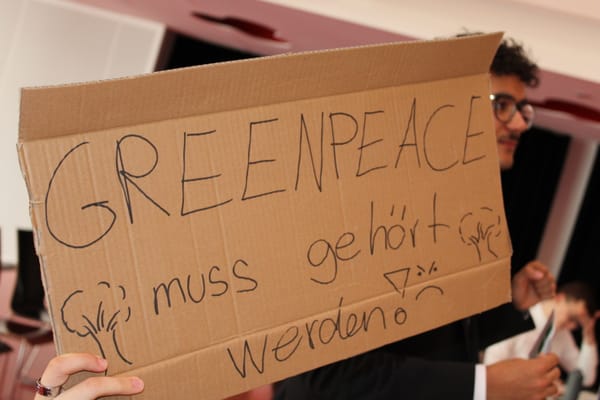 GREENPEACE
muss gehört
werden!